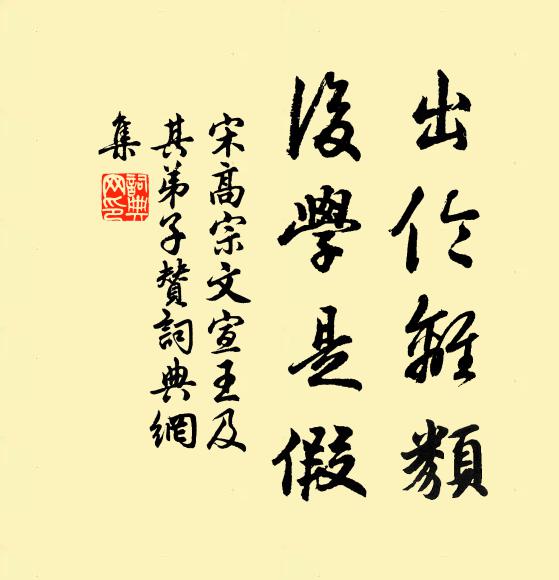 出伦離類
後學是假
宋高宗文宣王及
其弟子贊詞典網
集
詞典
网印